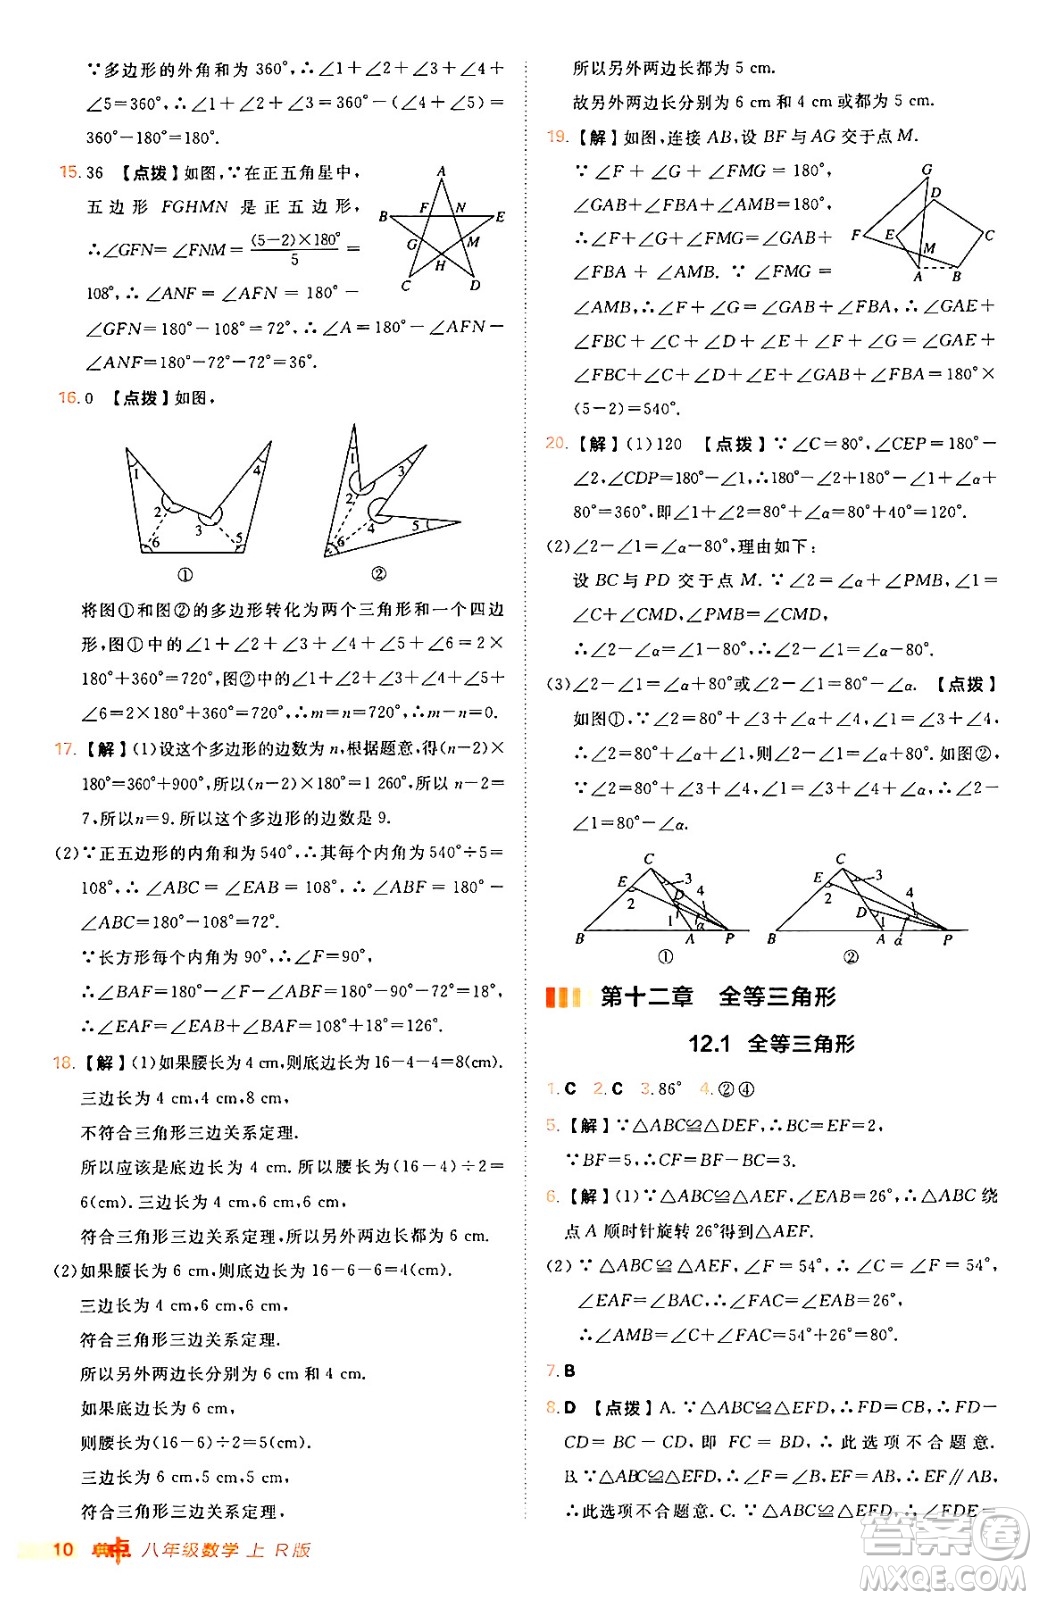 ∵多边形的外角和为 360°,∴∠1+∠2+∠3+∠4+
∠5=360°,∴∠1+∠2+∠3+∠4=360°-∠5=
360°-180°=180°.
15. 36 【点拨】如图,∵在正五角星中,
五边形 FGHMN 是正五边形,
∴∠GFN=∠FNM=(5-2)×180°/5=
108°,∴∠ANF=∠AFN=180°-
∠GFN=180°-108°=72°,∴∠A=180°-∠AFN-
∠ANF=180°-72°-72°=36°.
A
B F N E
G M
H
C D
16. 0 【点拨】如图,
1 4 2 3 6 5
1 3 2 4 5 6
① ②
将图①和图②的多边形转化为两个三角形和一个四边
形,图①中的∠1+∠2+∠3+∠4+∠5+∠6=2×
180°+360°=720°,图②的∠1+∠2+∠3+∠4+
∠5+∠6=2×180°+360°=720°,∴m=n=720°,∴m-n=0.
17. 【解】(1)设这个多边形的边数为 n,根据题意,得(n-2)×
180°=360°+900°,所以(n-2)×180°=1 260°,所以 n-2=
7,所以n=9.所以这个多边形的边数是 9.
(2)∵正五边形的内角和为 540°,∴其每个内角为 540°÷5=
108°,∴∠ABC=∠EAB=108°,∴∠ABF=180°-
∠ABC=180°-108°=72°.
∵长方形的每个内角为 90°,∴∠F=90°,
∴∠BAF=180°-∠F-∠ABF=18°,
∴∠EAF=∠EAB+∠BAF=108°+18°=126°.
18. 【解】(1)如果腰长为 4 cm,则底边长为 16-4-4=8(cm).
三边长为 4 cm,4 cm,8 cm,
不符合三角形三边关系定理.
所以应该是底边长为 4 cm.所以腰长为(16-4)÷2=
6(cm).三边长为 4 cm,6 cm,6 cm,
符合三角形三边关系定理,所以另外两边长都为 6 cm.
(2)如果腰长为 6 cm,则底边长为 16-6-6=4(cm).
三边长为 4 cm,6 cm,6 cm,
符合三角形三边关系定理.
所以另外两边长分别为 6 cm 和 4 cm.
如果底边长为 6 cm,
则腰长为(16-6)÷2=5(cm).
三边长为 6 cm,5 cm,5 cm,
符合三角形三边关系定理,
10 典点 八年级数学 上 R版
所以另外两边长都为 5 cm.
故另外两边长分别为 6 cm 和 4 cm 或都为 5 cm.
19. 【解】如图,连接 AB,设 BF 与 AG 交于点 M.
∵ ∠F + ∠G + ∠FMG = 180°,
∠GAB+∠FBA+∠AMB=180°,
∴∠F+∠G+∠FMG=∠GAB+
∠FBA+∠AMB. ∵ ∠FMG =
∠AMB,∴∠F+∠G=∠GAB+∠FBA,∴∠GAE+
∠ABC+∠C+∠D+∠E+∠F+∠G=∠GAE+
∠ABC+∠C+∠D+∠E+∠GAB+∠FBA=180°×
(5-2)=540°.
G
D
F E C
M
A B
20. 【解】(1)120 【点拨】∵∠C=80°,∠CEP=180°-
∠2,∠CDP=180°-∠1,∴180°-∠1+180°-∠2+∠α+
80°=360°,即∠1+∠2=80°+∠α=80°+40°=120°.
(2)∠2-∠1=∠α-80°,理由如下:
设 BC 与 PD 交于点 M.∵∠2=∠α+∠PMB,∠1=
∠C+∠CMD,∠PMB=∠CMD,
∴∠2-∠α=∠1-80°,∴∠2-∠1=∠α-80°.
(3)∠2-∠1=80°+∠α或∠2-∠1=80°-∠α. 【点拨】
如图①,∵∠2=80°+∠3+∠4,∠1+∠α=∠3+∠4,
∴∠2=80°+∠α+∠1,则∠2-∠1=80°+∠α.如图②,
∵∠2=80°+∠3+∠4,∠1=∠3+∠4+∠α,∴∠2-
∠1=80°-∠α.
C
E 3
2 D 4
1 α
B A P
①
C
E 3
2 D 4
1 α
B A P
②
第十二章 全等三角形
12.1 全等三角形
1. C 2. C 3. 86° 4. ②④
5. 【解】∵△ABC≌△DEF,∴BC=EF=2,
∵BF=5,∴CF=BF-BC=3.
6. 【解】(1)∵△ABC≌△AEF,∠BAE=26°,∴△ABC 绕
点 A 顺时针旋转 26°得到△AEF.
(2) ∵△ABC≌△AEF,∠F=54°,∴∠C=∠F=54°,
∠EAF=∠BAC,∴∠FAC=∠EAB=26°,
∴∠AMB=∠C+∠FAC=54°+26°=80°.
7. B
8. D 【点拨】A. ∵ △ABC≌△EFD,∴ FD=CB,∴ FD-
CD=BC-CD,即 FC=BD,∴ 此选项不合题意.
B.∵△ABC≌△EFD,∴∠E=∠A,∴EF∥AB,
∴此选项不合题意. C. ∵△ABC≌△EFD,∴∠FDE=
答案圈
MXQE.COM